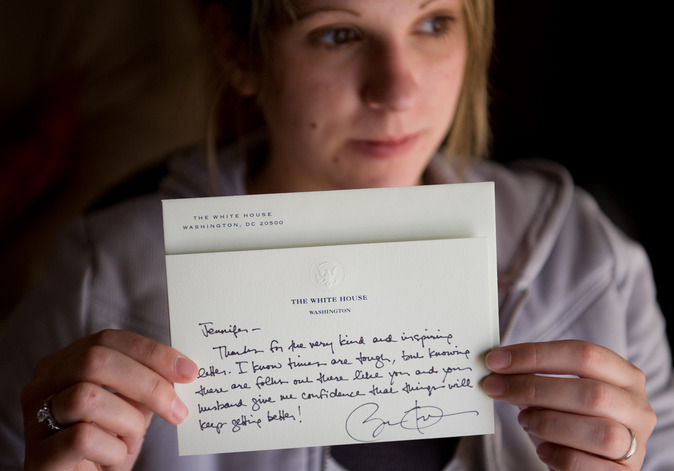 THE WHITE HOUSE
WASHINGTON, DC 20500
THE WHITE HOUSE
WASHINGTON
Jennifer—
Thanks for the very kind and inspiring
letter. I know times are tough, but knowing
there are folks out there like you and your
husband give me confidence that things will
keep getting better!